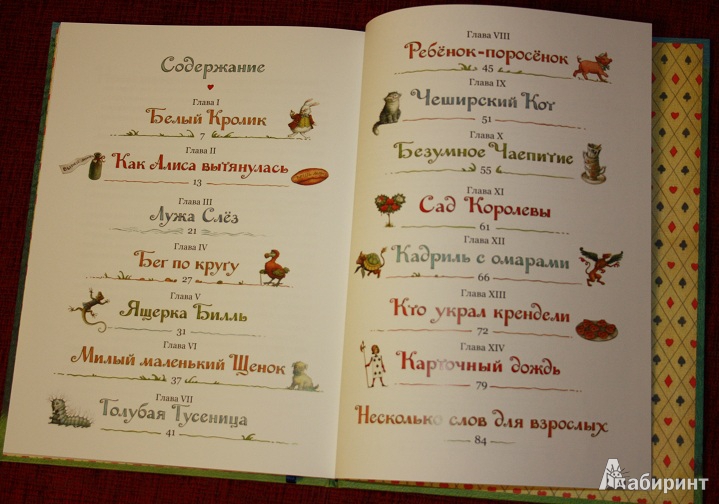 Содержание
Глава I
Белый Кролик
7
Глава II
Как Алиса вытянулась
13
Глава III
Лужа Слёз
21
Глава IV
Бег по кругу
27
Глава V
Ящерка Билль
31
Глава VI
Милый маленький Щенок
37
Глава VII
Голубая Гусеница
41
Глава VIII
Ребёнок-поросёнок
45
Глава IX
Чеширский Кот
51
Глава X
Безумное Чаепитие
55
Глава XI
Сад Королевы
61
Глава XII
Кадриль с омарами
66
Глава XIII
Кто украл крендели
72
Глава XIV
Карточный дождь
79
Несколько слов для взрослых
84
Лабиринт